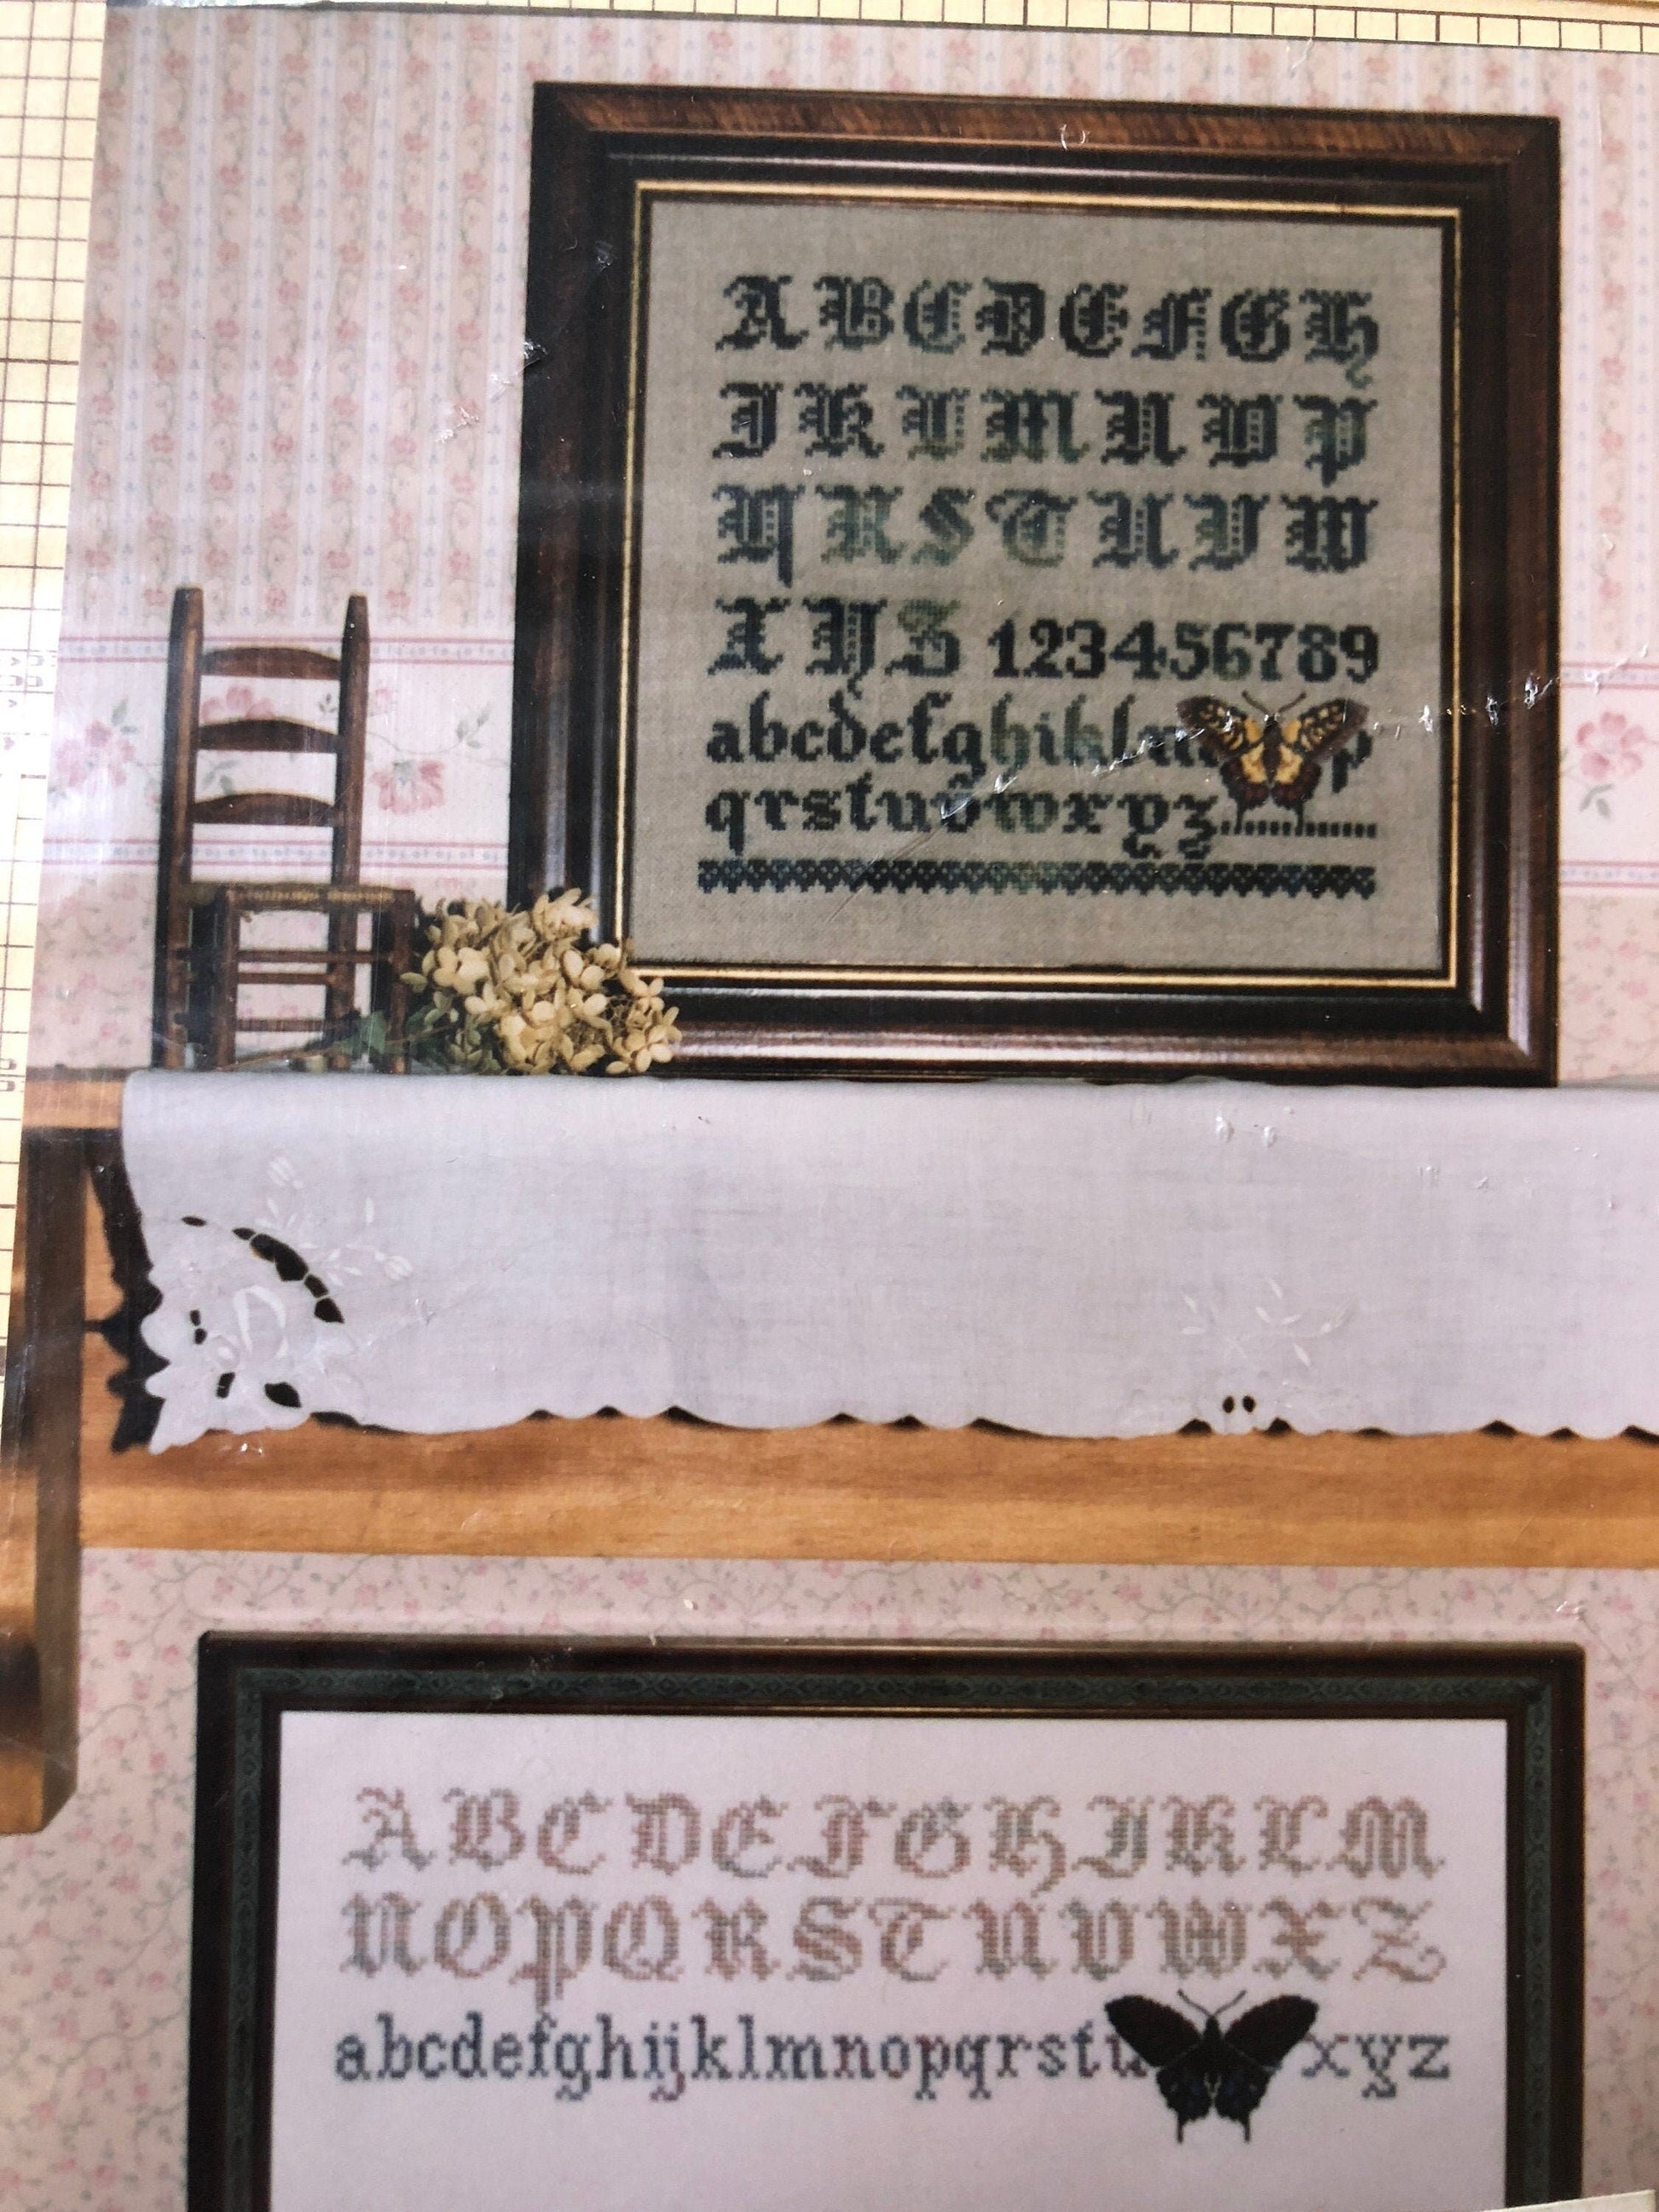 ABCDEFGH
IKLMNOP
QRSTUVW
XYZ 123456789
abcdefghiklm p
qrstuvwxyz
ABCDEFGHIKLM
NOPQRSTUVWXZ
abcdefghijklmnopqrstu xyz